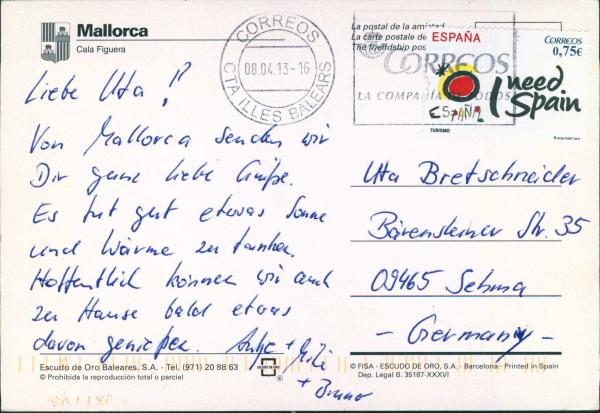 Mallorca
Cala Figuera
CORREOS
08.04.13-16
CTA ILLES BALEARS
La postal de la amistad
La carte postale de
The friendship pos
ESPAÑA
CORREOS
LA COMPAÑIA DE TODOS
CORREOS
0,75€
I need
Spain
ESPAÑA
TURISMO
Liebe Uta!
Von Mallorca senden wir
Dir ganz liebe Grüße.
Es tut gut etwas Sonne
und Wärme zu tanken.
Hoffentlich können wir auch
zu Hause bald etwas
davon genießen. Antje +
+ Bruno
Uta Bretschneider
Bärensteiner Str. 35
09465 Sehma
- Germany -
Escudo de Oro Baleares. S.A. - Tel. (971) 20 88 63
© Prohibida la reproducción total o parcial
ESCUDO DE ORO
®
© FISA - ESCUDO DE ORO, S.A. - Barcelona - Printed in Spain
Dep. Legal B. 35187-XXXVI